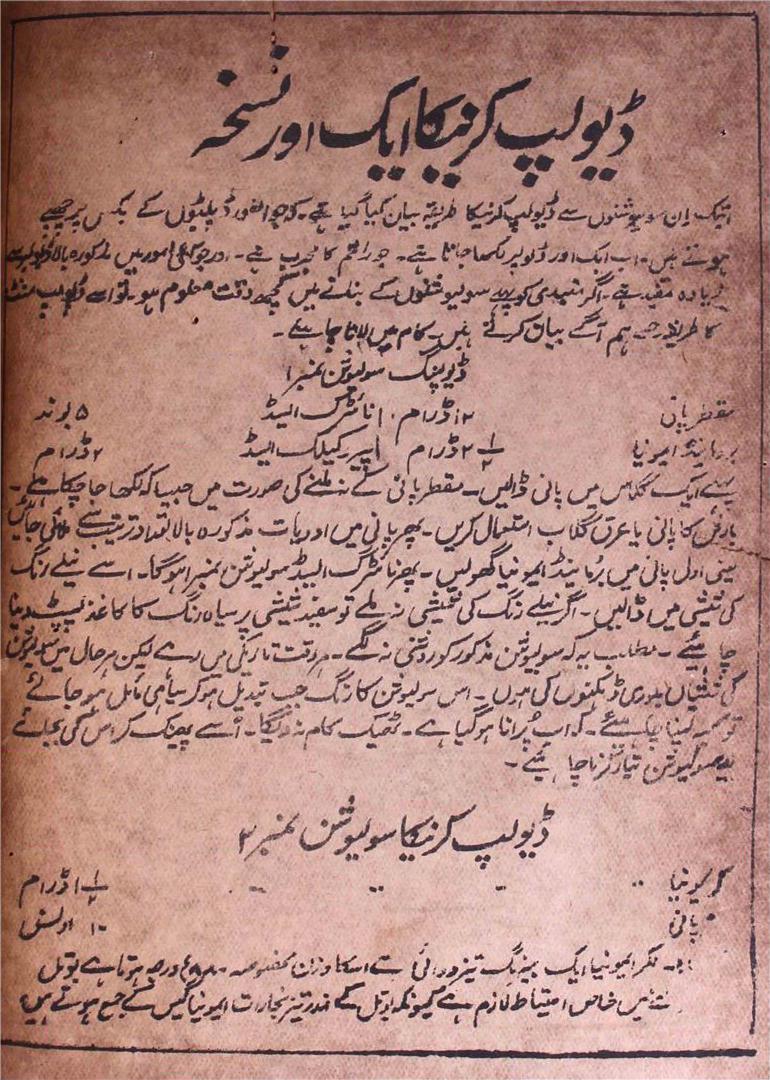 ڈیولپ کرنیکا ایک اور نسخہ
ابتک اِن سولیوشنوں سے ڈیولپ کرنیکا طریقہ بیان کیا گیا ہے۔ کہ جو الفورڈ پلیٹوں کے بکس پر چھپے
ہوتے ہیں۔ اب ایک اور ڈیولپر لکھا جاتا ہے۔ جو راقم کا مجرب ہے۔ اور جو کئی امور میں مذکورہ بالا ڈیولپر سے
زیادہ مفید ہے۔ اگر مبتدی کو پہلے سولیوشنوں کے بنانے میں کچھ دقت معلوم ہو۔ تو اسے ڈیولپ منٹ
کا طریقہ جسے ہم آگے بیان کرتے ہیں۔ کام میں لانا چاہیئے۔
ڈیولپنگ سولیوشن نمبر ۱
مقطر پانی ۱۲ ڈرام نائٹرک ایسڈ ۵ بوند
برومائیڈ ایمونیا ۲ ۱/۲ ڈرام پیروگیلک ایسڈ ۲ ڈرام
پہلے ایک گلاس میں پانی ڈالیں۔ مقطر پانی کے نہ ملنے کی صورت میں جیسا کہ لکھا جا چکا ہے۔
بارش کا پانی یا عرق گلاب استعمال کریں۔ پھر پانی میں ادویات مذکورہ بالا تعداد ترتیب سے ملائی جائیں
یعنی اول پانی میں برومائیڈ ایمونیا گھولیں۔ پھر نائٹرک ایسڈ سولیوشن نمبر ا ہوگا۔ اسے نیلے رنگ
کی شیشی میں ڈالیں۔ اگر نیلے رنگ کی شیشی نہ ملے تو سفید شیشی پر سیاہ رنگ کا کاغذ لپیٹ دینا
چاہیئے۔ مطلب یہ کہ سولیوشن مذکور کو روشنی نہ لگے۔ ہر وقت تاریکی میں رہے لیکن ہر حال میں سولیوشن
کی شیشیاں بلوری ڈہکنوں کی ہوں۔ اس سولیوشن کا رنگ جب تبدیل ہو کر سیاہی مائل ہو جائے
تو سمجھ لینا چاہیئے۔ کہ اب پُرانا ہو گیا ہے۔ ٹھیک کام نہ دیگا۔ اُسے پھینک کر اس کی بجائے
جدید سولیوشن تیار کرنا چاہیئے۔
ڈیولپ کرنیکا سولیوشن نمبر ۲
ایمونیا ۱ ۱/۲ ڈرام
پانی ۱۰ اونس
لکر ایمونیا ایک بیرنگ تیز دوائی ہے اسکا وزن مخصوصہ ۸۸۰ درجہ ہوتا ہے بوتل
میں خاص احتیاط لازم ہے کیونکہ بوتل کے اندر تیز بخارات ایمونیا گیس کے جمع ہوتے ہیں